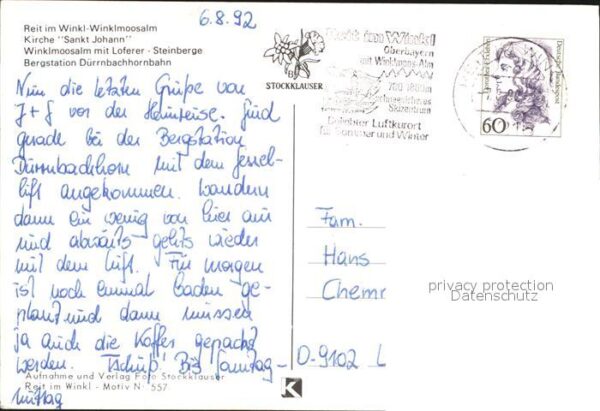 6.8.92
Reit im Winkl-Winklmoosalm
Kirche "Sankt Johann"
Winklmoosalm mit Loferer - Steinberge
Bergstation Dürrnbachhornbahn
STOCKKLAUSER
Reit im Winkl
Oberbayern
mit Winklmoos-Alm
700-1800m
Skizentrum
Beliebter Luftkurort
für Sommer und Winter
Deutsche Bundespost
60
Nun die letzten Grüße von
J+J vor der Heimreise. Sind
gerade bei der Bergstation
Dürrnbachhorn mit dem Sessel-
lift angekommen. Wandern
dann ein wenig von hier aus
und abwärts gehts wieder
mit dem Lift. Für morgen
ist noch einmal baden ge-
plant und dann müssen
ja auch die Koffer gepackt
werden. Tschüß! Bis Samstag-
mittag
Fam.
Hans
Chemn
D-9102 L
privacy protection
Datenschutz
Aufnahme und Verlag Foto Stockklauser
Reit im Winkl - Motiv Nr. 557
K